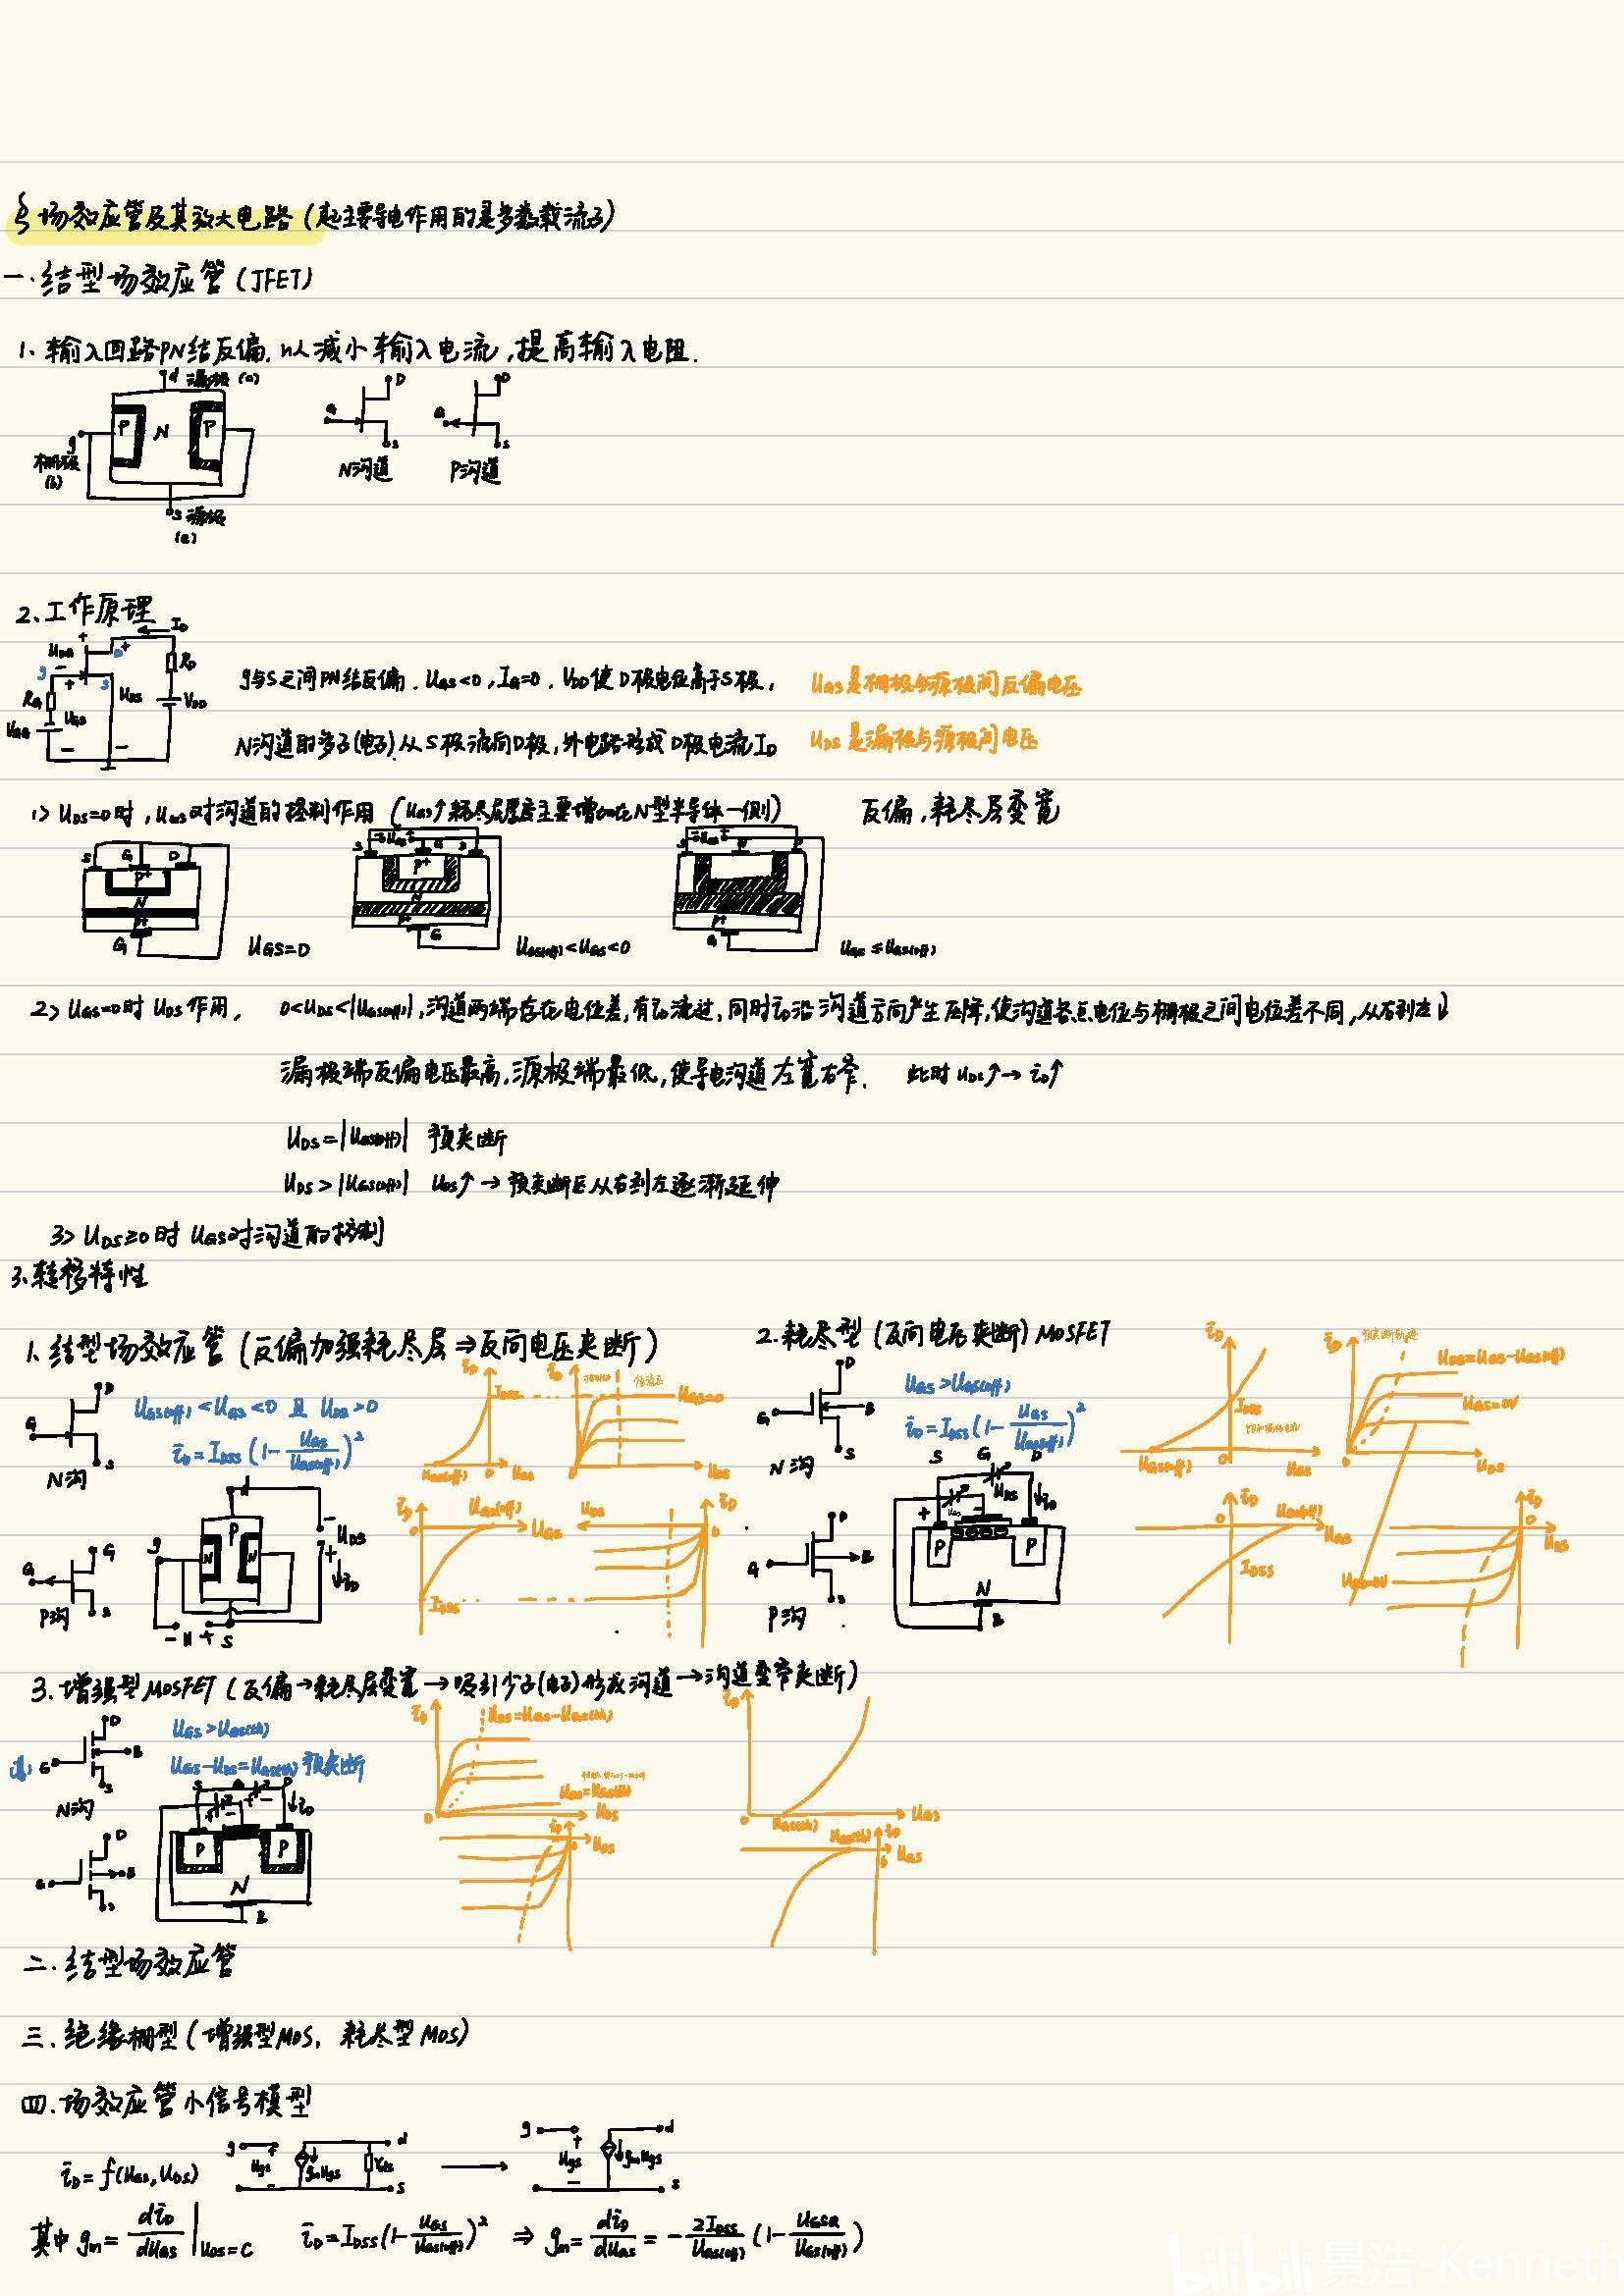 § 场效应管及其放大电路 (起主要导电作用的是多数载流子)
一. 结型场效应管 (JFET)
1. 输入回路PN结反偏, 以减小输入电流, 提高输入电阻.
d 漏极 (c)
P N P
g
栅极
(b)
s 源极
(e)
G D S
N沟道
G D S
P沟道
2. 工作原理
g与S之间PN结反偏. UGS<0, IG=0. VDD使D极电位高于S极,
UGS是栅极与源极间反偏电压
N沟道的多子(电子)从S极流向D极, 外电路形成D极电流ID
UDS是漏极与源极间电压
1> UDS=0时, UGS对沟道的控制作用 (UGS↑耗尽层厚度主要增加在N型半导体一侧)
反偏, 耗尽层变宽
UGS=0
UGS(off)<UGS<0
UGS≤UGS(off)
2> UGS=0时 UDS作用, 0<UDS<|UGS(off)|, 沟道两端存在电位差, 有iD流过, 同时iD沿沟道方向产生压降, 使沟道各点电位与栅极之间电位差不同, 从右到左↓
漏极端反偏电压最高, 源极端最低, 使导电沟道左宽右窄. 此时 UDS↑→iD↑
UDS=|UGS(off)| 预夹断
UDS>|UGS(off)| UDS↑→预夹断区从右到左逐渐延伸
3> UDS≥0时 UGS对沟道的控制
3. 转移特性
1. 结型场效应管 (反偏加强耗尽层⇒反向电压夹断)
UGS(off)<UGS<0 且 UDS>0
iD=IDSS(1-UGS/UGS(off))²
N沟
P沟
2. 耗尽型 (反向电压夹断) MOSFET
UGS>UGS(off)
iD=IDSS(1-UGS/UGS(off))²
N沟
P沟
UDS=UGS-UGS(off)
UGS=0V
3. 增强型MOSFET (反偏→耗尽层变宽→吸引少子(电子)形成沟道→沟道变窄夹断)
UGS>UGS(th)
UGS-UDS=UGS(th) 预夹断
N沟
UDS=UGS-UGS(th)
二. 结型场效应管
三. 绝缘栅型 (增强型MOS, 耗尽型MOS)
四. 场效应管小信号模型
iD=f(UGS, UDS)
g Ugs gmUgs rds d s
g Ugs gmUgs d s
其中 gm=diD/dUGS|UDS=C iD=IDSS(1-UGS/UGS(off))² ⇒ gm=diD/dUGS=-2IDSS/UGS(off)(1-UGSQ/UGS(off))
bilibili 景浩-Kenneth